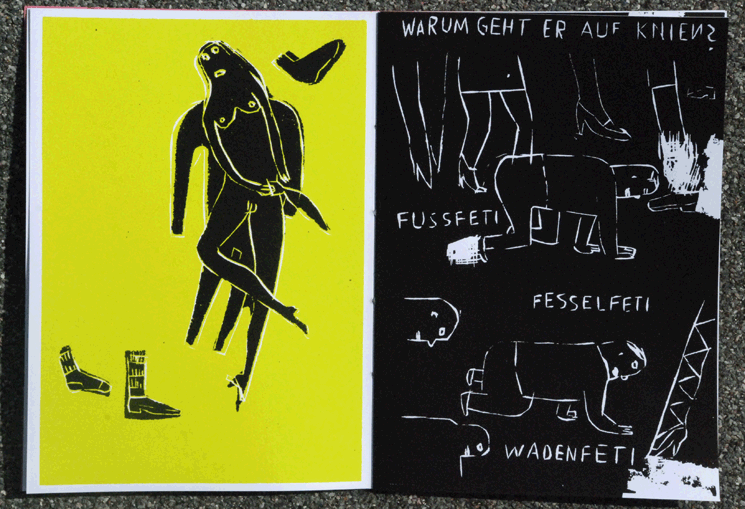 WARUM GEHT ER AUF KNIEN?
FUSSFETI
FESSELFETI
WADENFETI